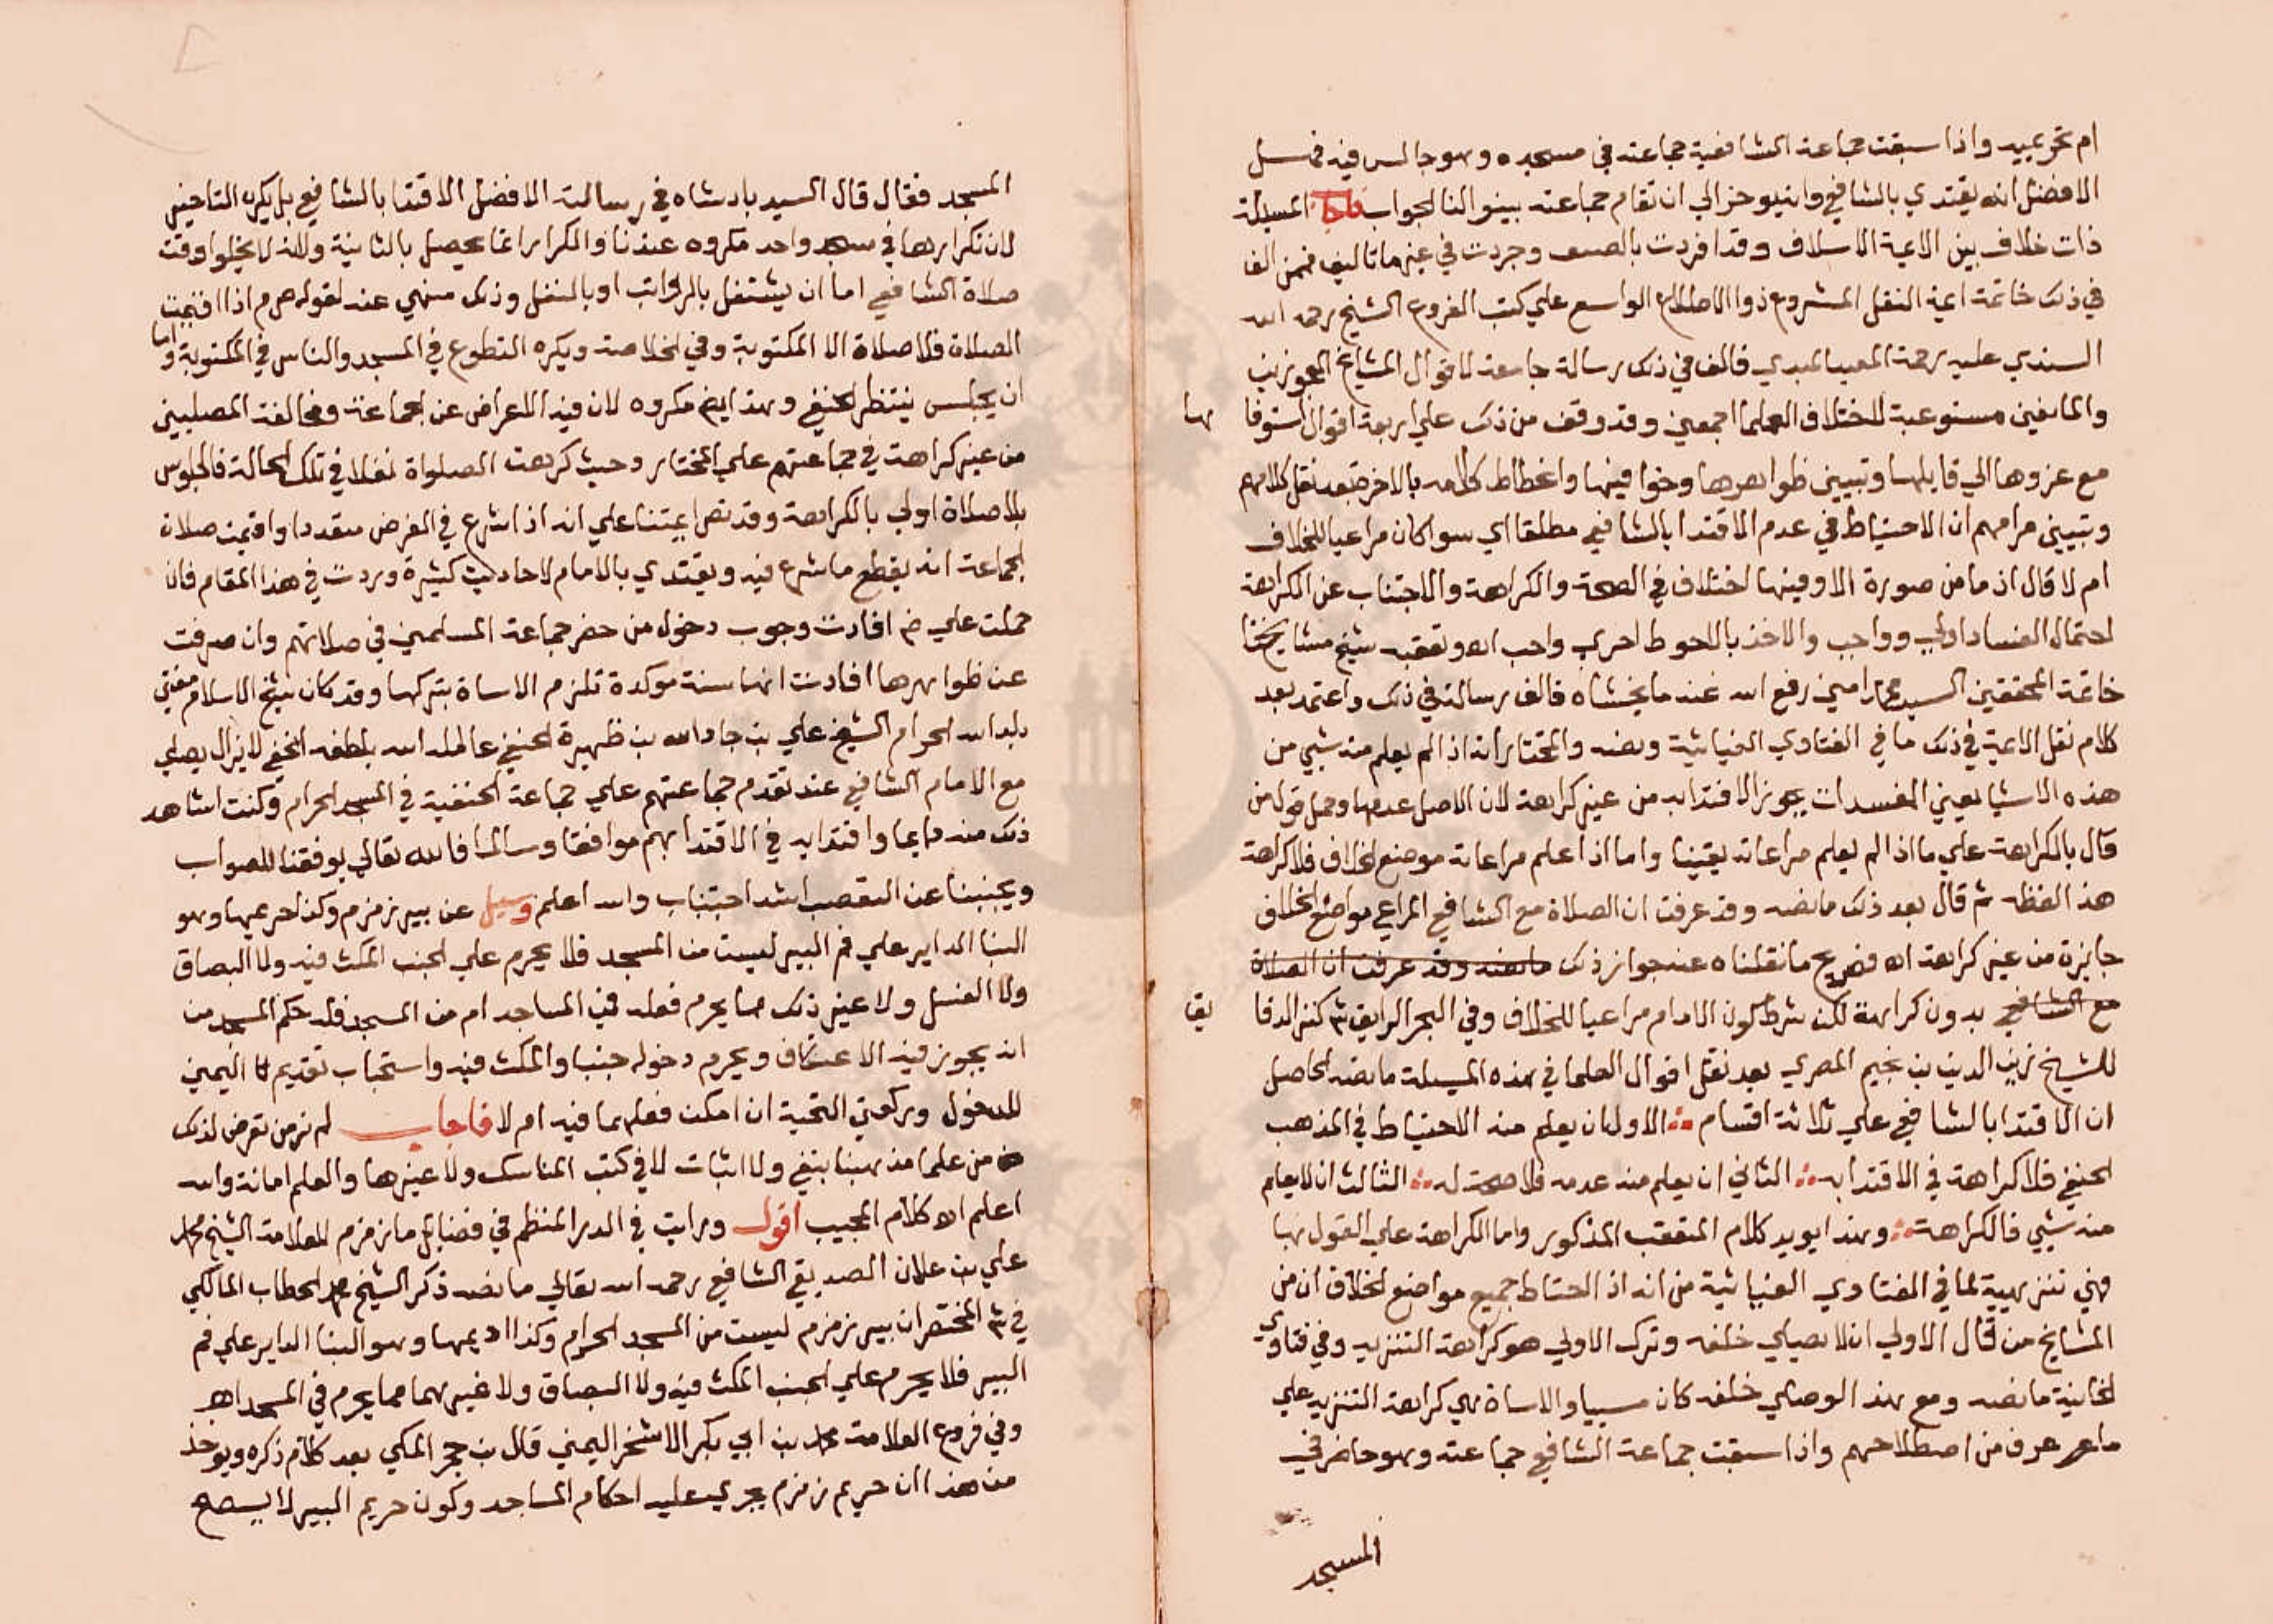 ام تحريمية واذا سبقت جماعة الشافعية جماعته في مسجده وهو جالس فيه فهل
الافضل انه يقتدي بالشافعي وان يوخر الي ان تقام جماعته بينوا لنا الجواب فاجاب المسيلة
ذات خلاف بين الايمة الاسلاف وقد افردت بالتصنيف وجردت في عينها تاليف فممن الف
في ذلك خاتمة ايمة النقل المشروع ذو الاطلاع الواسع علي كتب الفروع الشيخ رحمه الله
السندي عليه رحمة المعيد المبدي فالف في ذلك رسالة جامعة لاقوال المشايخ المجوزين
والمانعين مستوعبة لاختلاف العلما اجمعين وقد وقف من ذلك علي اربعة اقوال استوفاها
مع عزوها الي قايلها وتبيين ظواهرها وخوافيها وانحطاط كلامه بالاخر بعد نقل كلامهم
وتبيين مرامهم ان الاحتياط في عدم الاقتدا بالشافعي مطلقا اي سوا كان مراعيا للخلاف
ام لا قال اذ ما من صورة الا وفيها اختلاف في الصحة والكراهة والاجتناب عن الكراهة
احتمال الفساد اولي وواجب والاخذ بالاحوط احري واحب اه وتعقبه شيخ مشايخنا
خاتمة المحققين السيد محمد امين رفع الله عنه ما يخشاه فالف رسالة في ذلك واعتمد بعد
كلام نقل الايمة في ذلك ما في الفتاوي الغياثية ونصه والمختار انه اذا لم يعلم منه شي من
هذه الاشيا يعني المفسدات يجوز الاقتدا به من غير كراهة لان الاصل عدمها وحمل قول من
قال بالكراهة علي ما اذا لم يعلم مراعاته يقينا واما اذا علم مراعاته موضع الخلاف فلا كراهة
هذا لفظه ثم قال بعد ذلك ما نصه وقد عرفت ان الصلاة مع الشافعي المراعي مواضع الخلاف
جايزة من غير كراهة اه فصريح ما نقلناه عنه جواز ذلك ما نصه وقد عرفت ان الصلاة
مع الشافعي بدون كراهة لكن شرط كون الامام مراعيا للخلاف وفي البحر الرايق شرح كنز الدقايق
للشيخ زين الدين بن نجيم المصري بعد نقل اقوال العلما في هذه المسيلة ما نصه الحاصل
ان الاقتدا بالشافعي علي ثلاثة اقسام الاول ان يعلم منه الاحتياط في المذهب
الحنفي فلا كراهة في الاقتدا به الثاني ان يعلم منه عدمه فلا صحة له الثالث ان لا يعلم
منه شي فالكراهة وهذا يويد كلام المتعقب المذكور واما الكراهة علي القول بها
فهي تنزيهية لما في الفتاوي الغياثية من انه اذا احتاط جميع مواضع الخلاف ان من
المشايخ من قال الاولي ان لا يصلي خلفه وترك الاولي هو كراهة التنزيه وفي فتاوي
الخانية ما نصه ومع هذا لو صلي خلفه كان مسييا والاساة هي كراهة التنزيه علي
ما عرف من اصطلاحهم واذا سبقت جماعة الشافعي جماعته وهو حاضر في
المسجد
المسجد فقال قال السيد بادشاه في رسالته الافضل الاقتدا بالشافعي بل يكره التاخير
لان تكرارها في مسجد واحد مكروه عندنا والتكرار انما يحصل بالثانية ولانه لا يخلو اوقت
صلاة الشافعي اما ان يشتغل بالرواتب او بالنفل وذلك منهي عنه لقوله صلعم اذا اقيمت
الصلاة فلا صلاة الا المكتوبة وفي الخلاصة ويكره التطوع في المسجد والناس في المكتوبة واما
ان يجلس ينتظر الحنفي وهذا ايضا مكروه لان فيه الاعراض عن الجماعة ومخالفة المصليين
من غير كراهة في جماعتهم علي المختار وحيث كرهت الصلواة نفلا في تلك الحالة فالجلوس
بلا صلاة اولي بالكراهة وقد نص ايمتنا علي انه اذا شرع في الفرض منفردا واقيمت صلاة
الجماعة انه يقطع ما شرع فيه ويقتدي بالامام لاحاديث كثيرة وردت في هذا المقام فان
حملت علي افادت وجوب دخول من حضر جماعة المسلمين في صلاتهم وان صرفت
عن ظواهرها افادت انها سنة موكدة تلزم الاساة بتركها وقد كان شيخ الاسلام مفتي
بلد الله الحرام الشيخ علي بن جار الله بن ظهيرة الحنفي عامله الله بلطفه الخفي لا يزال يصلي
مع الامام الشافعي عند تقدم جماعتهم علي جماعة الحنفية في المسجد الحرام وكنت اشاهد
ذلك منه دايما واقتدا به في الاقتدا بهم موافقا وسالما فالله تعالي يوفقنا للصواب
ويجنبنا عن التعصب اشد اجتناب والله اعلم وسيل عن بير زمزم وكذا حريمها وهو
البنا الداير علي فم البير ليست من المسجد فلا يحرم علي الجنب المكث فيه ولا البصاق
ولا الغسل ولا غير ذلك مما يحرم فعله في المساجد ام من المسجد فله حكم المسجد من
انه يجوز فيه الاعتكاف ويحرم دخوله جنبا والمكث فيه واستحباب تقديم اليمني
للدخول وركعتي التحية ان امكن فعلهما فيه ام لا فاجاب لم نر من تعرض لذلك
من علما مذهبنا بنفي ولا اثبات لا في كتب المناسك ولا غيرها والعلم امانة والله
اعلم اه كلام المجيب اقول ورايت في الدر المنظم في فضايل ما زمزم للعلامة الشيخ محمد
علي بن علان الصديقي الشافعي رحمه الله تعالي ما نصه ذكر الشيخ محمد الحطاب المالكي
في شرح المختصر ان بير زمزم ليست من المسجد الحرام وكذا اديمها وهو البنا الداير علي فم
البير فلا يحرم علي الجنب المكث فيه ولا البصاق ولا غيرهما مما يحرم في المسجد اهـ
وفي فروع العلامة محمد بن ابي بكر الاشخر اليمني قال بن حجر المكي بعد كلام ذكره ويوخذ
من هذا ان حريم زمزم يجري عليه احكام المساجد وكون حريم البير لا يصح